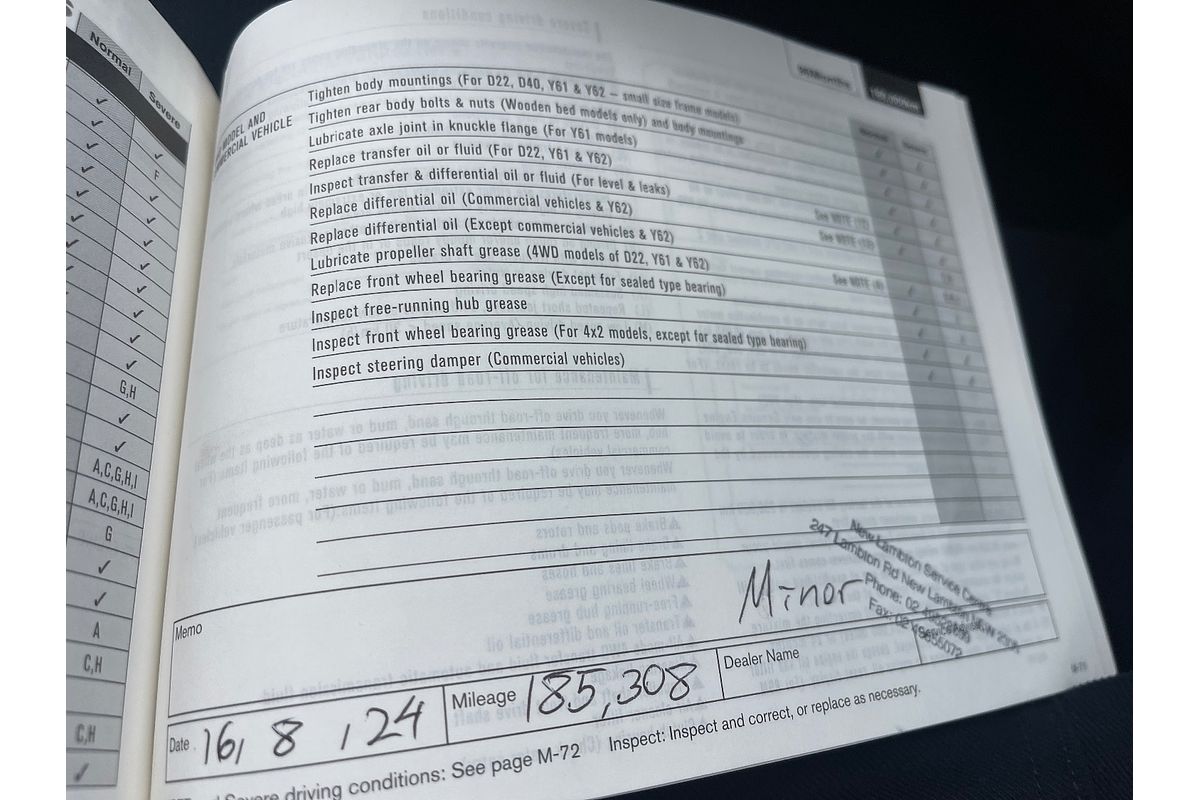 Normal
Severe
F
G,H
A,C,G,H,I
A,C,G,H,I
G
A
C,H
C,H
MODEL AND
VEHICLE
Tighten body mountings (For D22, D40, Y61 & Y62 – small size frame models)
Tighten rear body bolts & nuts (Wooden bed models only) and body mountings
Lubricate axle joint in knuckle flange (For Y61 models)
Replace transfer oil or fluid (For D22, Y61 & Y62)
Inspect transfer & differential oil or fluid (For level & leaks)
Replace differential oil (Commercial vehicles & Y62)
Replace differential oil (Except commercial vehicles & Y62)
Lubricate propeller shaft grease (4WD models of D22, Y61 & Y62)
Replace front wheel bearing grease (Except for sealed type bearing)
Inspect free-running hub grease
Inspect front wheel bearing grease (For 4x2 models, except for sealed type bearing)
Inspect steering damper (Commercial vehicles)
Memo
Minor
New Lambton Service Centre
247 Lambton Rd New Lambton NSW
Phone: 02
Fax: 02 49655072
Date 16, 8, 24
Mileage 185,308
Dealer Name
Severe driving conditions: See page M-72 Inspect: Inspect and correct, or replace as necessary.